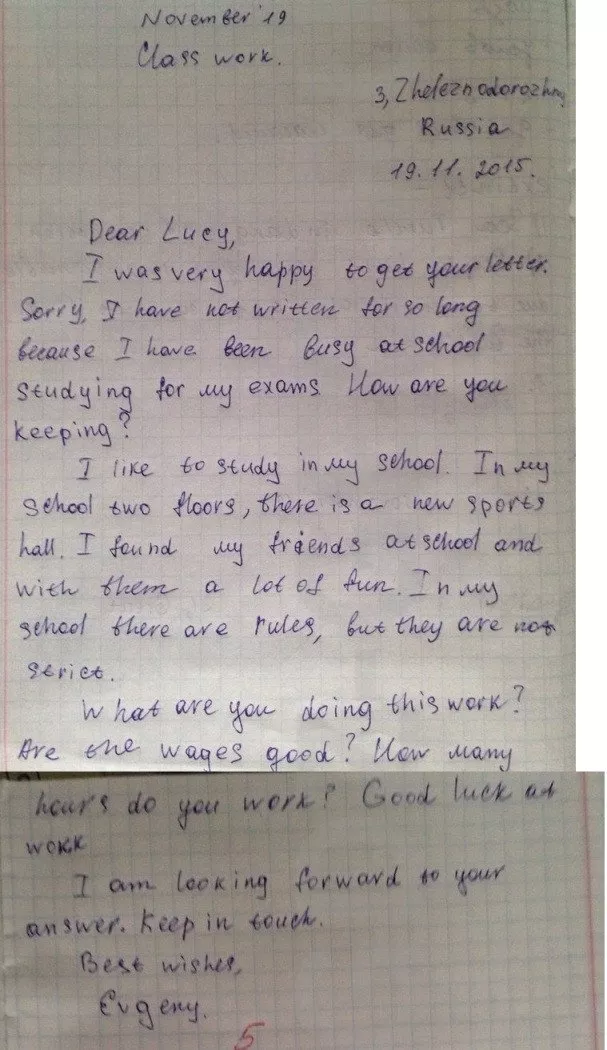 November '19
Class work.
3, Zheleznodorozhny
Russia
19.11.2015.
Dear Lucy,
I was very happy to get your letter.
Sorry, I have not written for so long
because I have been busy at school
studying for my exams. How are you
keeping?
I like to study in my school. In my
school two floors, there is a new sports
hall. I found my friends at school and
with them a lot of fun. In my
school there are rules, but they are not
strict.
What are you doing this work?
Are the wages good? How many
hours do you work? Good luck at
work
I am looking forward to your
answer. Keep in touch.
Best wishes,
Evgeny.
5